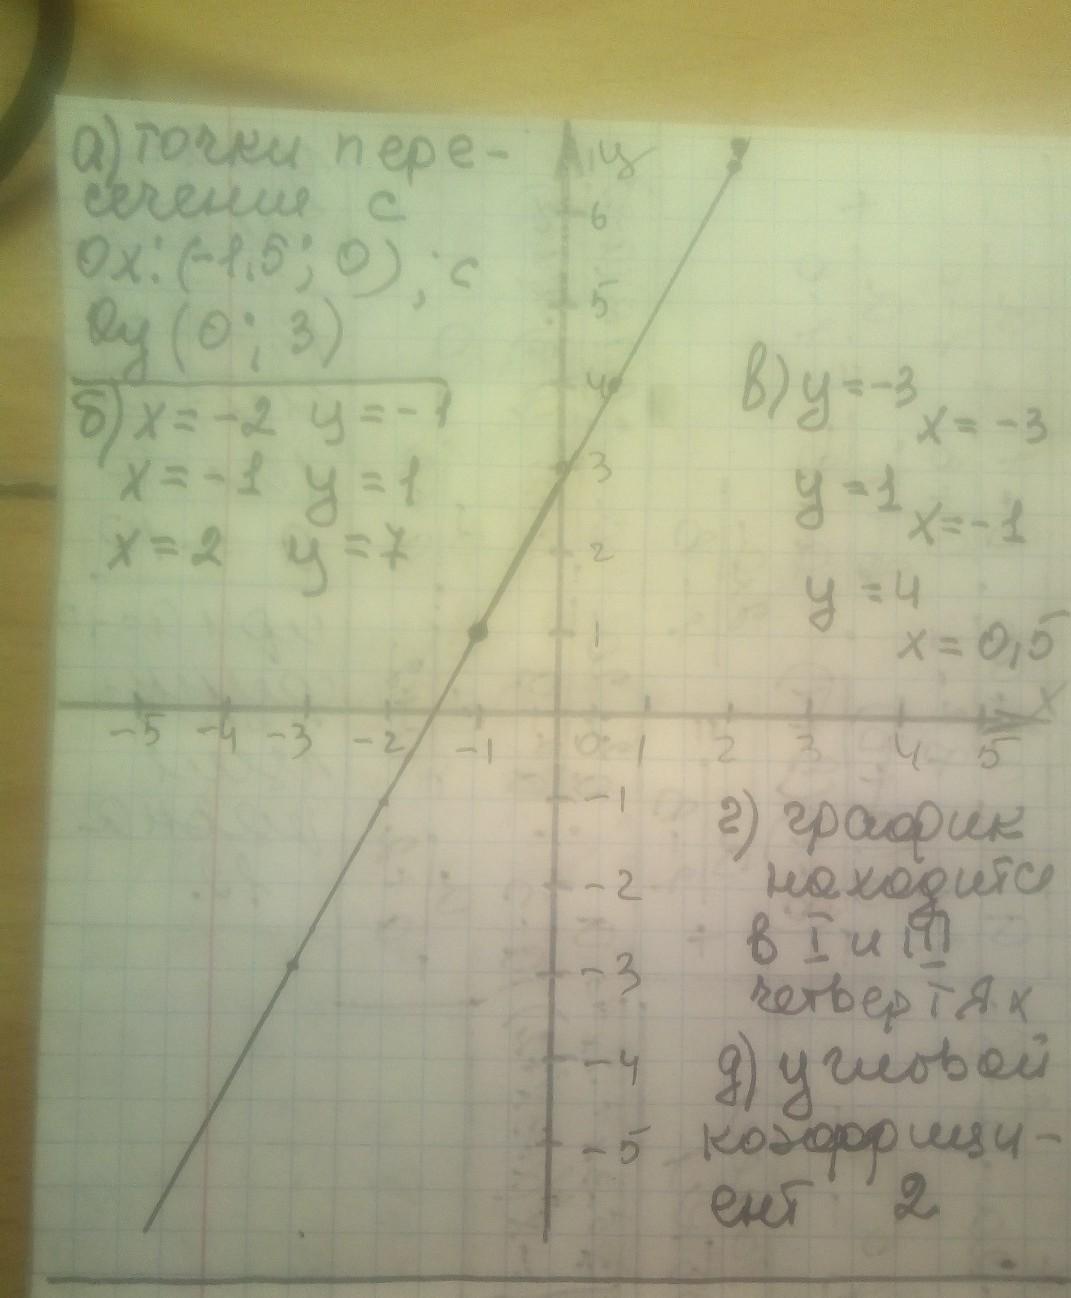 а) точки пере-
сечения с
Ox: (-1,5; 0), с
Oy (0; 3)
б) x = -2 y = -1
x = -1 y = 1
x = 2 y = 7
y
6
5
4
3
2
1
в) y = -3
x = -3
y = 1
x = -1
y = 4
x = 0,5
x
-5 -4 -3 -2 -1 0 1 2 3 4 5
-1
-2
-3
-4
-5
г) график
находится
в I и III
четвертях
д) угловой
коэффици-
ент 2